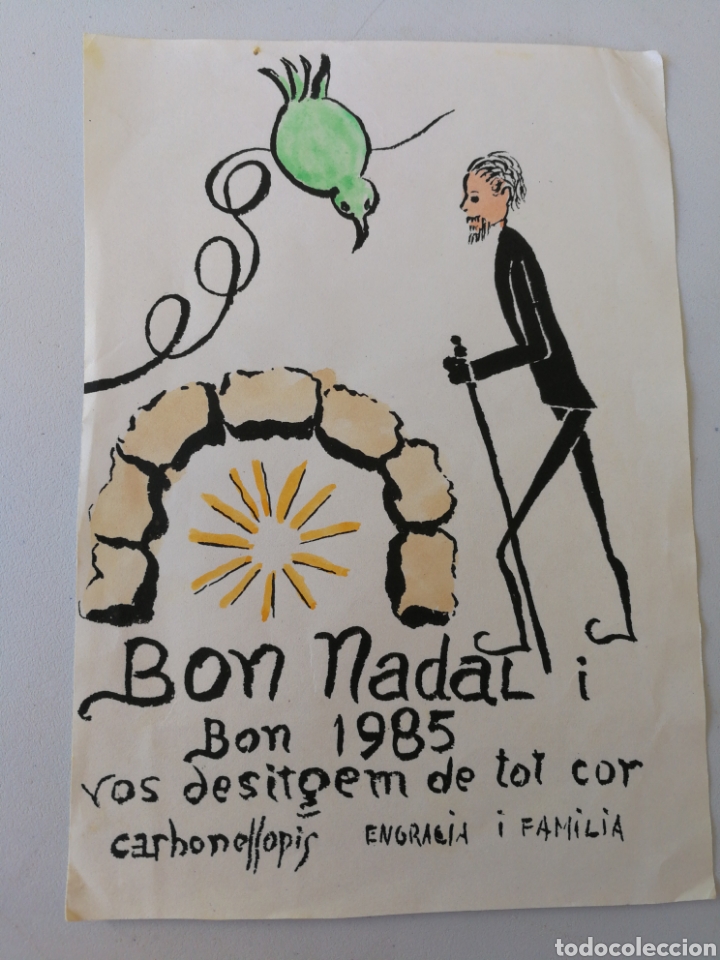 Bon Nadal i
Bon 1985
vos desitgem de tot cor
carbonellopis ENGRACIA i FAMILIA
todocoleccion